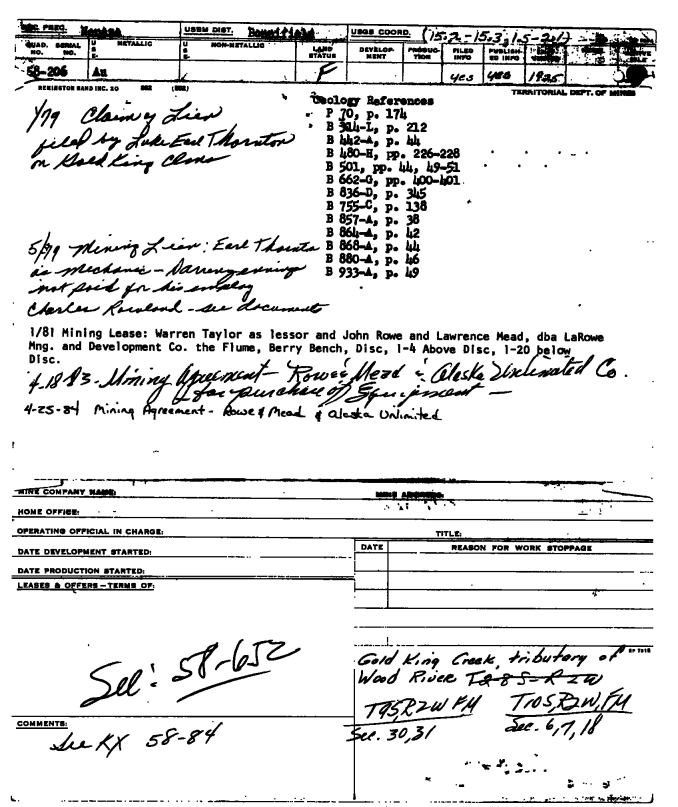 REC. PREC. Nenana USBM DIST. Bonnifield USGS COORD. (15.2-15.3, 1.5-2.1)
QUAD. NO. SERIAL NO. METALLIC NON-METALLIC LAND STATUS DEVELOP-MENT PRODUC-TION FILED INFO PUBLISH-ED INFO
58-206 Au F yes yes 1925
REMINGTON RAND INC. 20 TERRITORIAL DEPT. OF MINES
Geology References
P 70, p. 174
B 314-L, p. 212
B 442-A, p. 44
B 480-H, pp. 226-228
B 501, pp. 44, 49-51
B 662-G, pp. 400-401
B 836-D, p. 345
B 755-C, p. 138
B 857-A, p. 38
B 864-A, p. 42
B 868-A, p. 44
B 880-A, p. 46
B 933-A, p. 49
1/79 Claim of Lien
filed by Luke Earl Thornton
on Gold King Claims
5/79 Mining Lien: Earl Thornton
as mechanic -
not paid for his employ
Charles - see documents
1/81 Mining Lease: Warren Taylor as lessor and John Rowe and Lawrence Mead, dba LaRowe
Mng. and Development Co. the Flume, Berry Bench, Disc, 1-4 Above Disc, 1-20 below
Disc.
4-18-83 - Mining Agreement - Rowe & Mead & Alaska Unlimated Co.
for purchase of Equipment -
4-25-84 Mining Agreement - Rowe & Mead & Alaska Unlimited
MINE COMPANY NAME: MINE ADDRESS:
HOME OFFICE:
OPERATING OFFICIAL IN CHARGE: TITLE:
DATE DEVELOPMENT STARTED: DATE REASON FOR WORK STOPPAGE
DATE PRODUCTION STARTED:
LEASES & OFFERS - TERMS OF:
See: 58-652
Gold King Creek, tributary of
Wood River T8 & 8 S-R 2W
T9S, R2W FM T10S, R2W, FM
Sec. 30, 31 Sec. 6, 7, 18
COMMENTS:
See KX 58-84